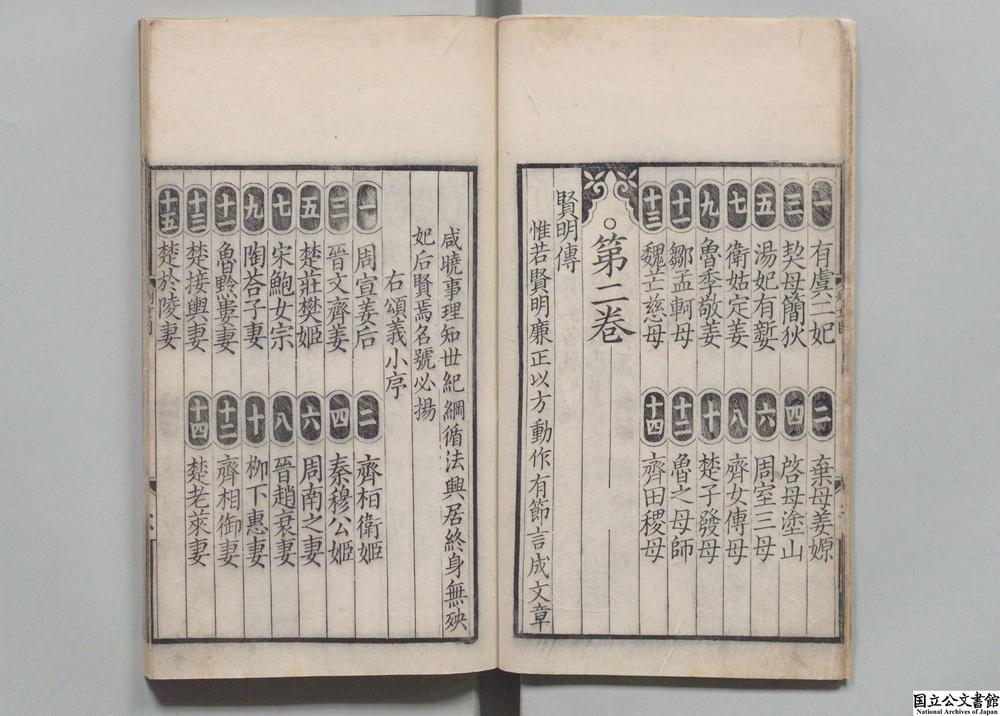 一 有虞二妃 二 棄母姜嫄
三 契母簡狄 四 啓母塗山
五 湯妃有㜪 六 周室三母
七 衛姑定姜 八 齊女傳母
九 魯季敬姜 十 楚子發母
十一 鄒孟軻母 十二 魯之母師
十三 魏芒慈母 十四 齊田稷母
第二卷
賢明傳
惟若賢明廉正以方動作有節言成文章
咸曉事理知世紀綱循法興居終身無殃
妃后賢焉名號必揚
右頌義小序
一 周宣姜后 二 齊桓衛姬
三 晉文齊姜 四 秦穆公姬
五 楚莊樊姬 六 周南之妻
七 宋鮑女宗 八 晉趙衰妻
九 陶荅子妻 十 柳下惠妻
十一 魯黔婁妻 十二 齊相御妻
十三 楚接輿妻 十四 楚老萊妻
十五 楚於陵妻
国立公文書館
National Archives of Japan